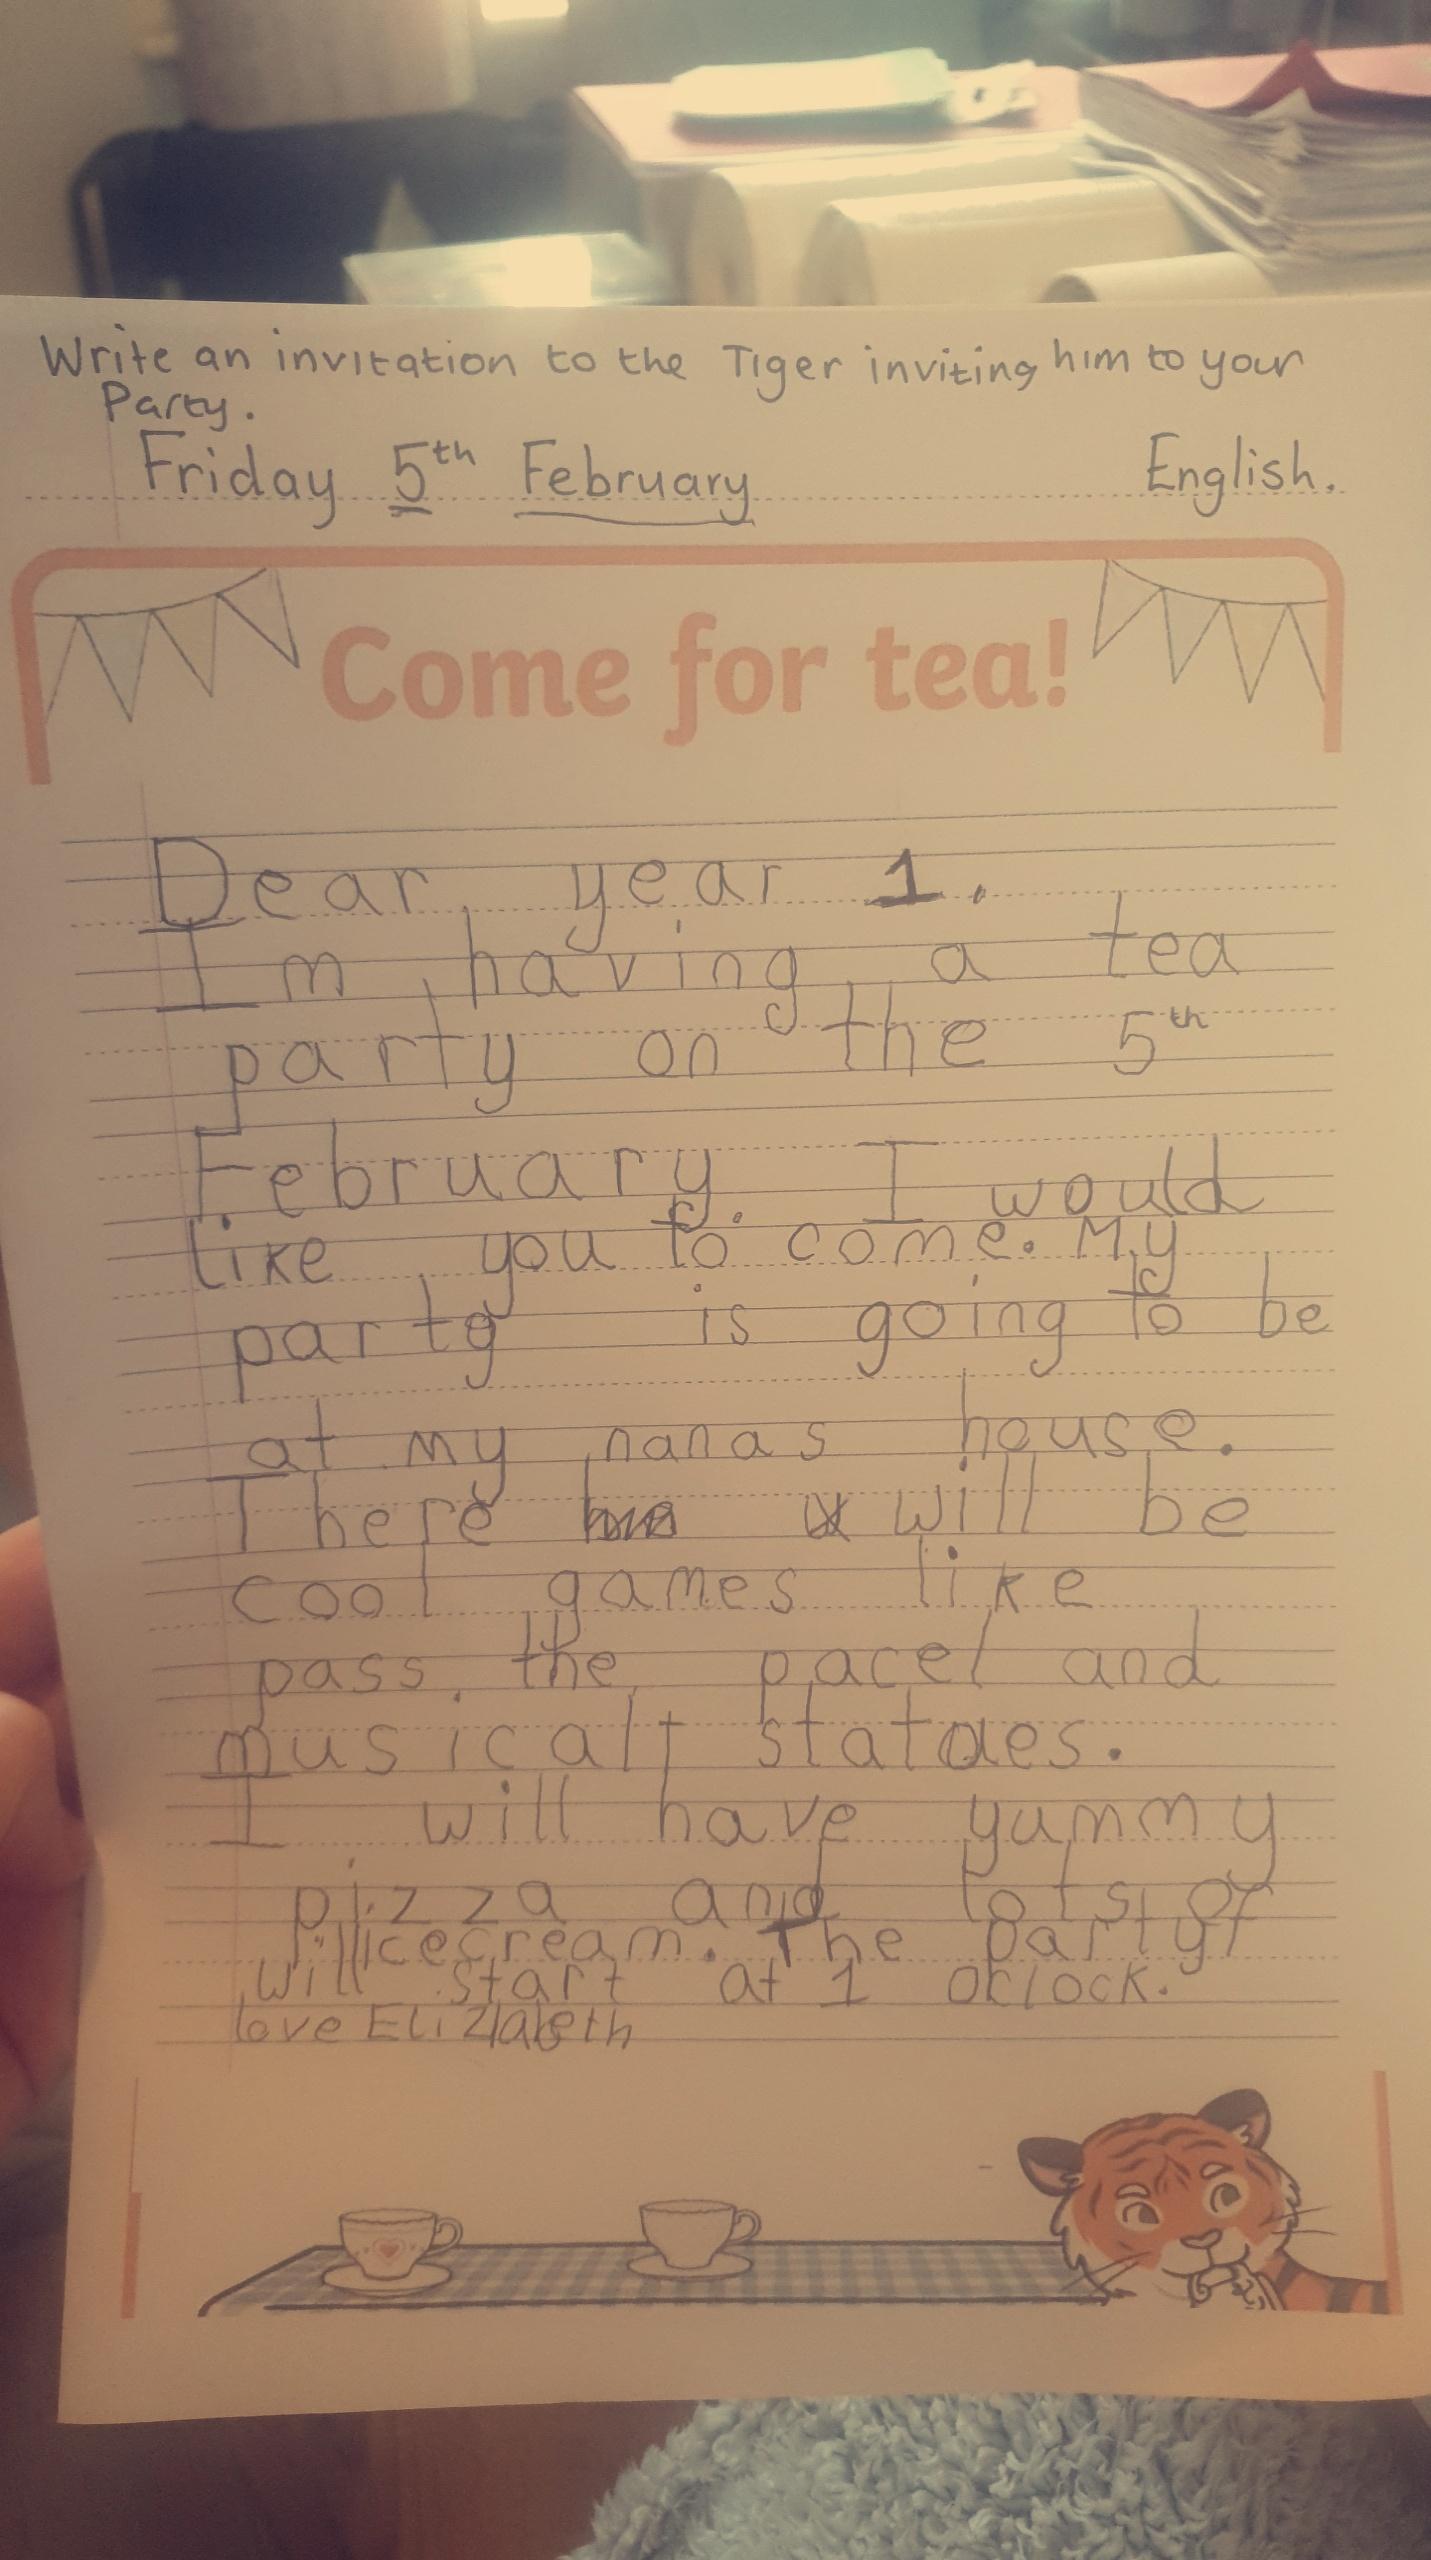 Write an invitation to the Tiger inviting him to your
Party.
Friday 5th February English.
Come for tea!
Dear year 1.
Im having a tea
party on the 5th
February. I would
like you to come. My
party is going to be
at my nanas house.
There will be
cool games like
pass the pacel and
musicalt statues.
I will have yummy
pizza and lots of
icecream. The party
will start at 1 oclock.
love Elizabeth